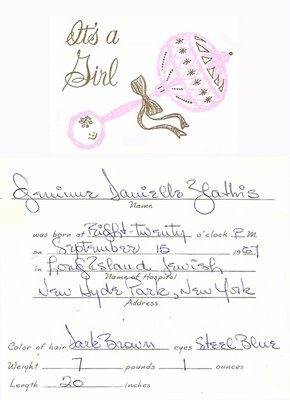 It's a
Girl
Danielle
Name
was born at Eight-twenty o'clock P.M.
on September 15 1967
in Long Island Jewish
Name of Hospital
New Hyde Park, New York
Address
Color of hair Dark Brown eyes Steel Blue
Weight 7 pounds 1 ounces
Length 20 inches